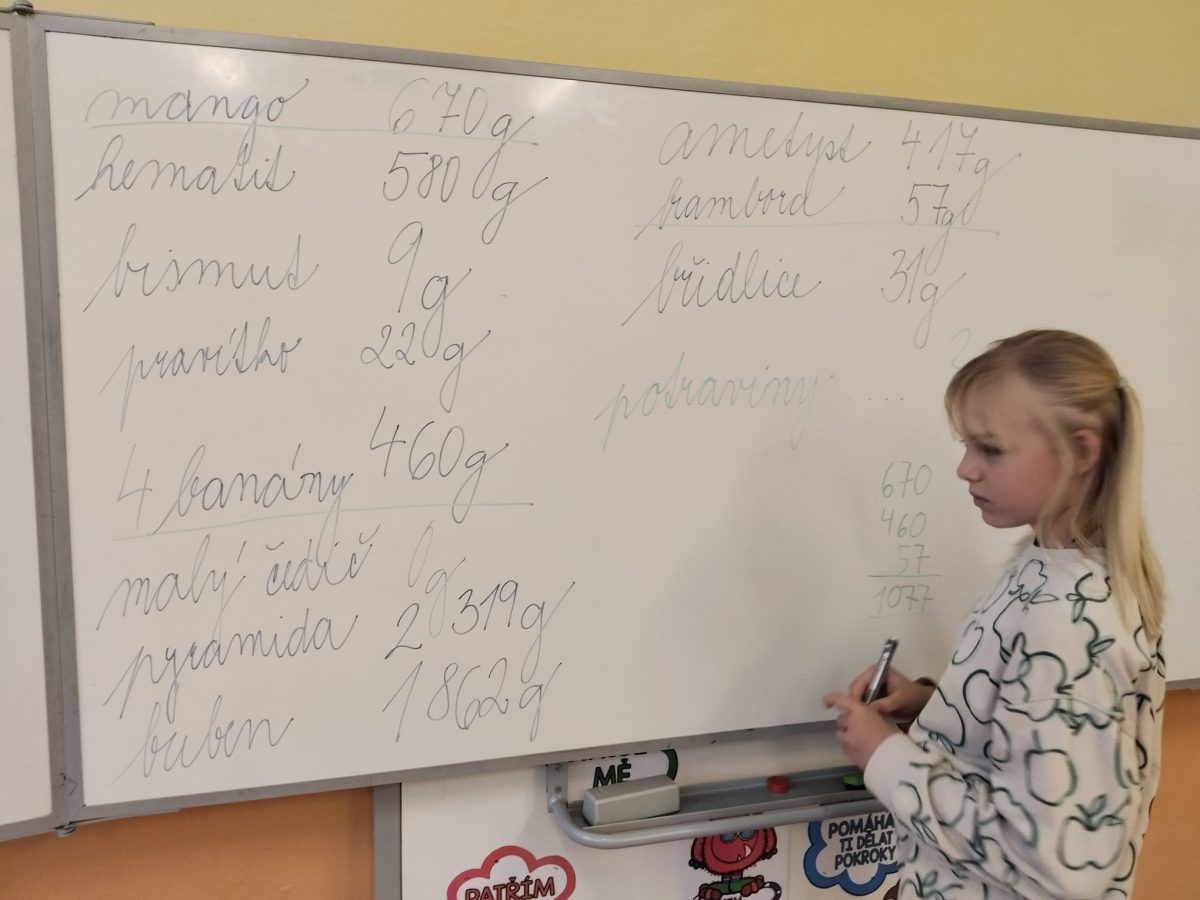 mango 670g
hematit 580g
bismut 9g
pravítko 22g
4 banány 460g
malý čedič 0g
pyramida 2 319g
buben 1 862g
ametyst 417g
brambora 57g
břidlice 31g
potraviny: ....
670
460
57
1077
MĚ
PATŘÍM
POMÁHÁ
TI DĚLAT
POKROKY